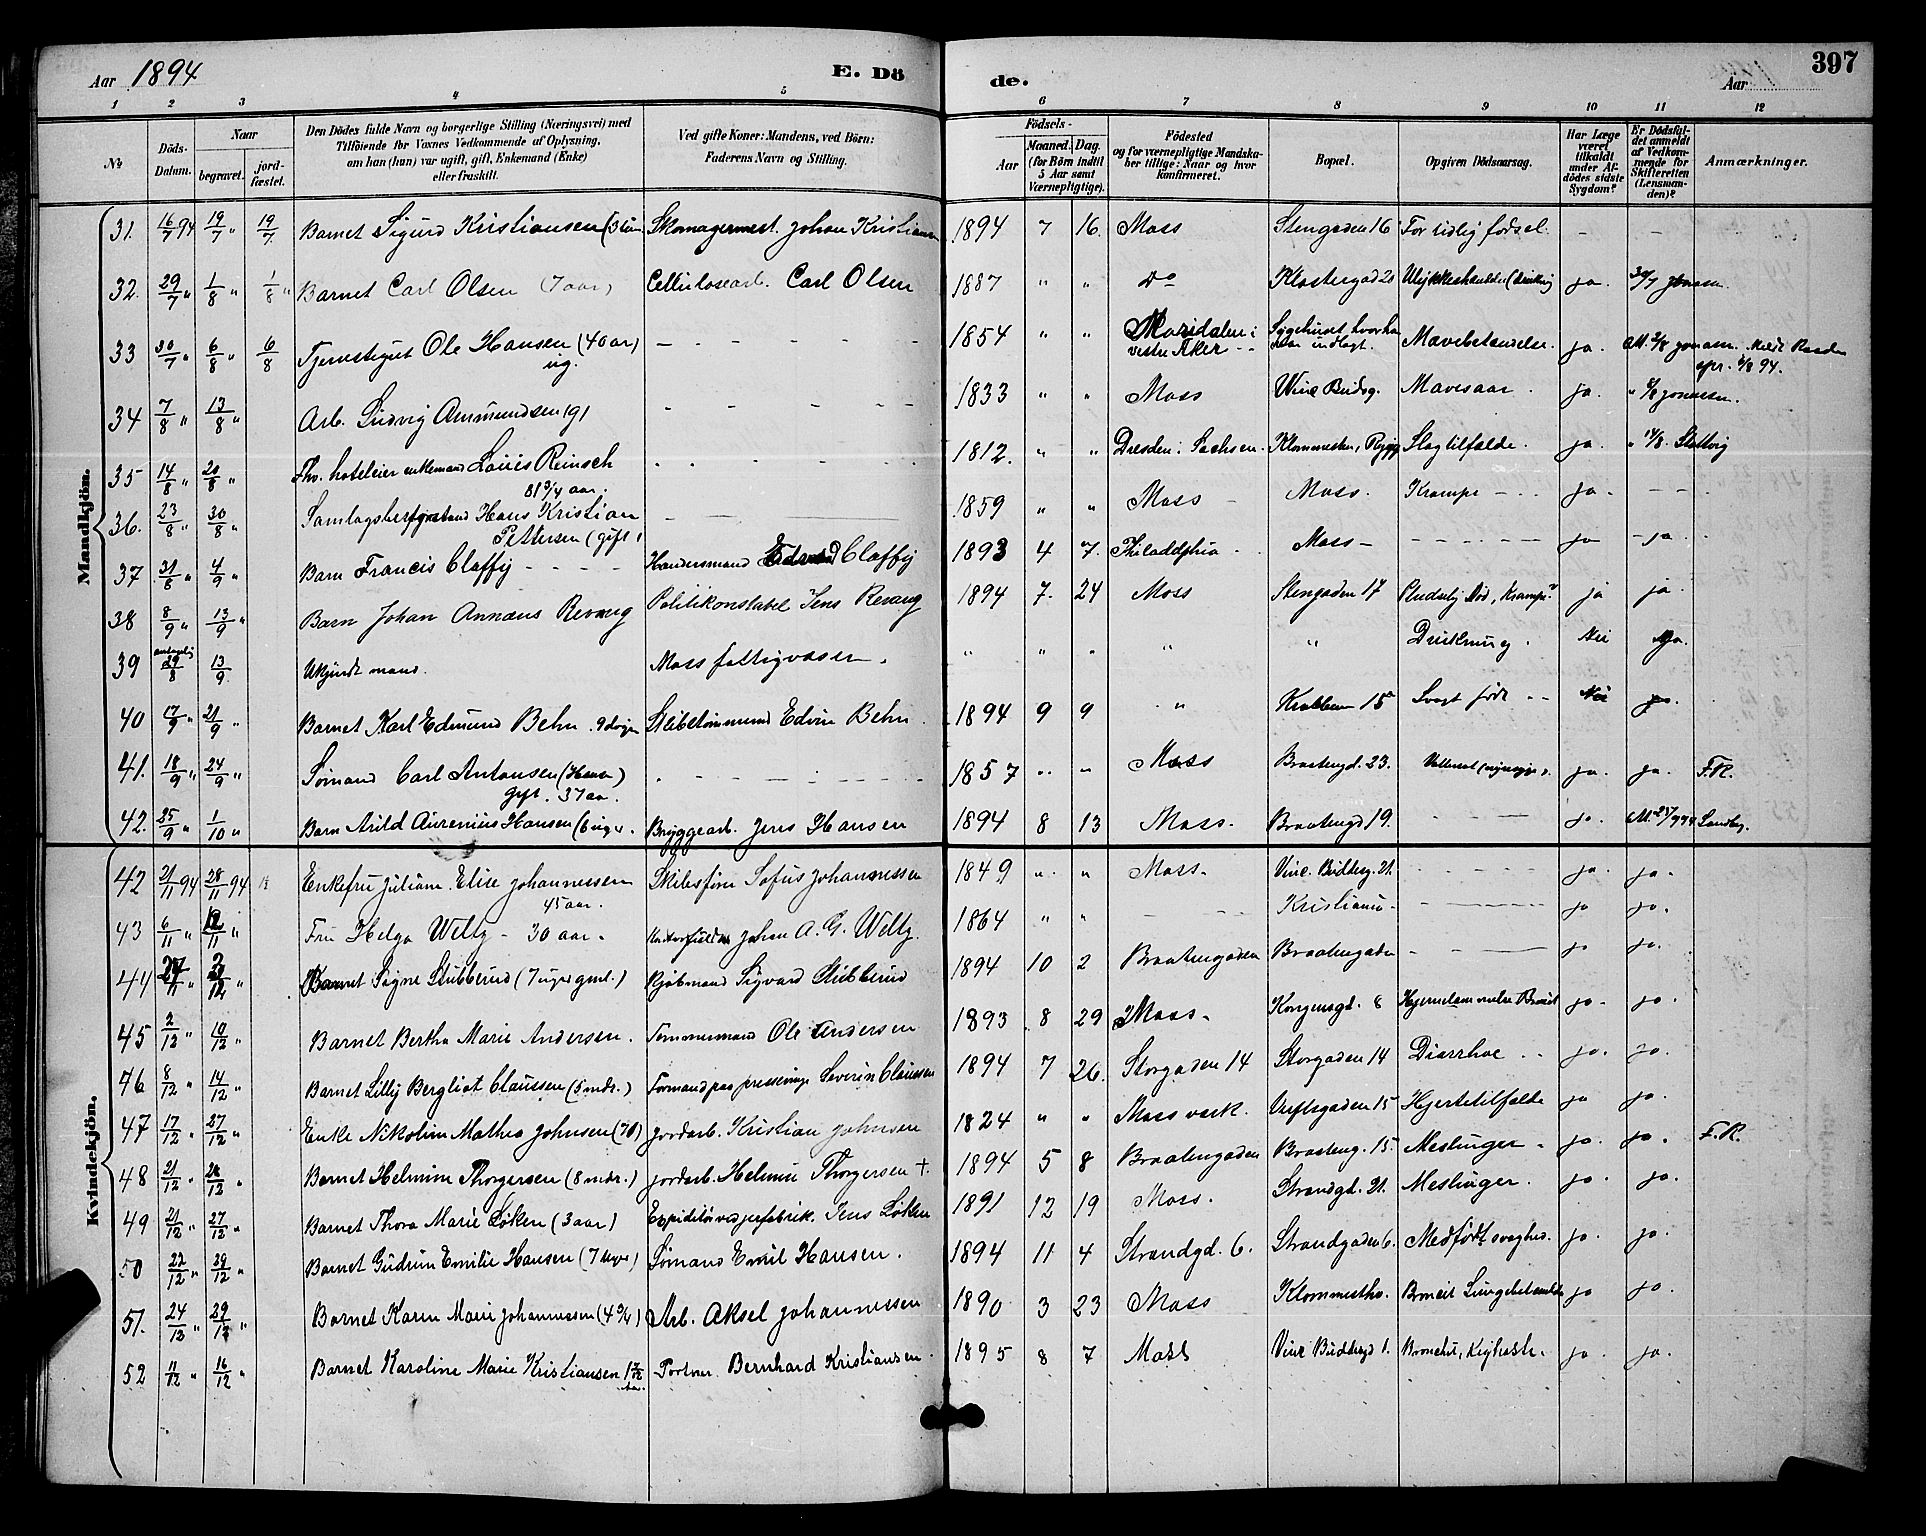 Aar 1894
E. Dö
de.
Aar
397
1 2 3 4 5 6 7 8 9 10 11 12
№
Döds-Datum.
Naar
begravet.
jord-fæstet.
Den Dödes fulde Navn og borgerlige Stilling (Næringsvei) med
Tilföiende for Voxnes Vedkommende af Oplysning,
om han (hun) var ugift, gift, Enkemand (Enke)
eller fraskilt.
Ved gifte Koner: Mandens, ved Börn:
Faderens Navn og Stilling.
Födsels-
Aar
Maaned. Dag.
(for Börn indtil
5 Aar samt
Værnepligtige).
Födested
og for værnepligtige Mandska-
ber tillige: Naar og hvor
konfirmeret.
Bopæl.
Opgiven Dödsaarsag.
Har Læge
været
tilkaldt
under Af-
dödes sidste
Sygdom?
Er Dödsfal-
det anmeldt
af Vedkom-
mende for
Skifteretten
(Lensman-
den)?
Anmærkninger.
Mandkjön.
31. 16/7 94 19/7 " 19/7 Barnet Sigurd Kristiansen Skomagermest. Johan Kristiansen 1894 7 16. Moss Stengaden 16 For tidlig fødsel. – –
32. 29/7 " 1/8 " 1/8 " Barnet Carl Olsen (7 aar) Cellulosearb. Carl Olsen 1887 " " Do Klostergad 20 Ulykkeshændelse (drukning) ja. 30/7
33 30/7 " 6/8 " 6/8 Tjenestegut Ole Hansen (40 aar) ug. – – – 1854 " " Maridalen i vestre Aker Sygehuset hvor han var indlagt. Mavebetændelse. ja. 94.
34 7/8 " 13/8 " Arb. Ludvig Ammundsen 191 – – – 1833 " " Moss Vinc. Budsg. Mavesaar. ja.
35 14/8 " 20/8 " Fhv. hoteleier enkemand Louis Reinsch 81 3/4 aar. 1812. " " Dresden i Sachsen. Slagtilfælde. ja.
36. 23/8 " 30/8 " Samlagsbestyrer Hans Kristian Pettersen (gift) – – 1859 " " Moss – Moss. Krampe – ja. – – –
37 31/8 " 4/9 " Barn Francis Claffy – – – Edward Claffy 1893 4 7. Philadelphia Moss – – – – ja – ja.
38 8/9 " 13/9 " Barn Johan Annæus Revaug Politikonstabel Jens Revaug 1894 7. 24 Moss Stengaden 17 Pludselig Død, Krampe? ja ja.
39 antagelig 29/8 13/9 Ukjendt mand. Moss fattigvæsen. " " " " " Drukning. Nei Ja.
40 17/9 " 21/9 " Barnet Karl Edmund Behn. 9 dage Edvin Behn. 1894 9 9 " 15 Svagt født Nei ja.
41. 18/9 " 24/9 " Sømand Carl Antonsen gift. 37 aar. – – – 1857 " " Moss Braatengd. 23. ja. ja. F.R.
42. 25/9 " 1/10 " Barn Arild Aurenius Hansen (6 uger. Bryggearb. Jens Hansen 1894 8 13 Moss. Braatengd 19. – – – ja. Sandberg.
Kvindekjön.
42 21/11 94 28/11 94 Enkefru Juliane Elise Johannessen 45 aar. Skibsfører Sofus Johannessen 1849 " " Moss. Vinc. Buddesg. 21. – – – ja. ja.
43 6/11 " 12/11 " Fru Helga Weltz – 30 aar. Johan A. G. Weltz. 1864 " " – – – Kristiania – – – – ja ja.
44 27/11 " 2/12 " Barnet Signe Stubberud (7 uger gml.) Kjøbmand Sigvard Stubberud 1894 10 2 Braatengaden Braatengaden – – – ja ja.
45 2/12 " 10/12 " Barnet Bertha Marie Andersen. Tømmermand Ole Andersen 1893 8 29 Moss. Kongensgd. 8 ja. ja.
76 8/12 " 14/12 " Barnet Lilly Bergliot Claussen (5 mdr.) Severin Claussen 1894 7 26. Storgaden 14 Storgaden 14 Diarrhoe ja. ja.
47 17/12 " 27/12 " Enke Nikoline Mathea Johnsen (70) Jordarb. Kristian Johnsen 1824 " " Moss værk. Værftsgaden 15 Hjertetilfælde ja ja.
48 21/12 " 28/12 " Barnet Helmine Thorgersen (8 mdr.) Jordarb. Helmer Thorgersen †. 1894 5 8 Braatengaden Braateng. 15. Meslinger – ja. ja. F.R.
49 21/12 " 27/12 " Barnet Thora Marie Løken (3 aar) Jens Løken 1891 12 19 Moss. Strandgd. 21. Meslinger. ja. ja.
50 22/12 " 29/12 " Barnet Gudrun Emilie Hansen (7 uger) Sømand Emil Hansen. 1894 11 4 Strandgd. 6. Strandgaden 6. Medfødt svaghed. ja. ja.
51. 24/12 " 29/12 " Barnet Karen Marie Johannessen (4 3/4) Arb. Aksel Johannessen 1890 3 23 Moss Bronkit Lungebetændelse ja ja.
52 11/12 " 16/12 " Barnet Karoline Marie Kristiansen Portner Bernhard Kristiansen. 1895 8 7 Moss Vinc Buddesgd 1. Bronchit, Kighoste. ja. ja.